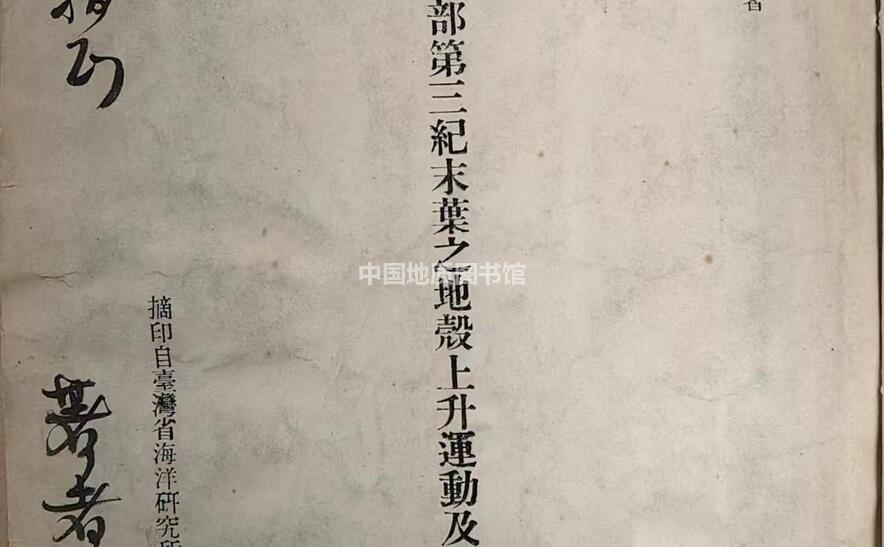 部第三紀末葉之地殼上升運動及
摘印自臺灣省海洋研究所
著者
中国地质图书馆